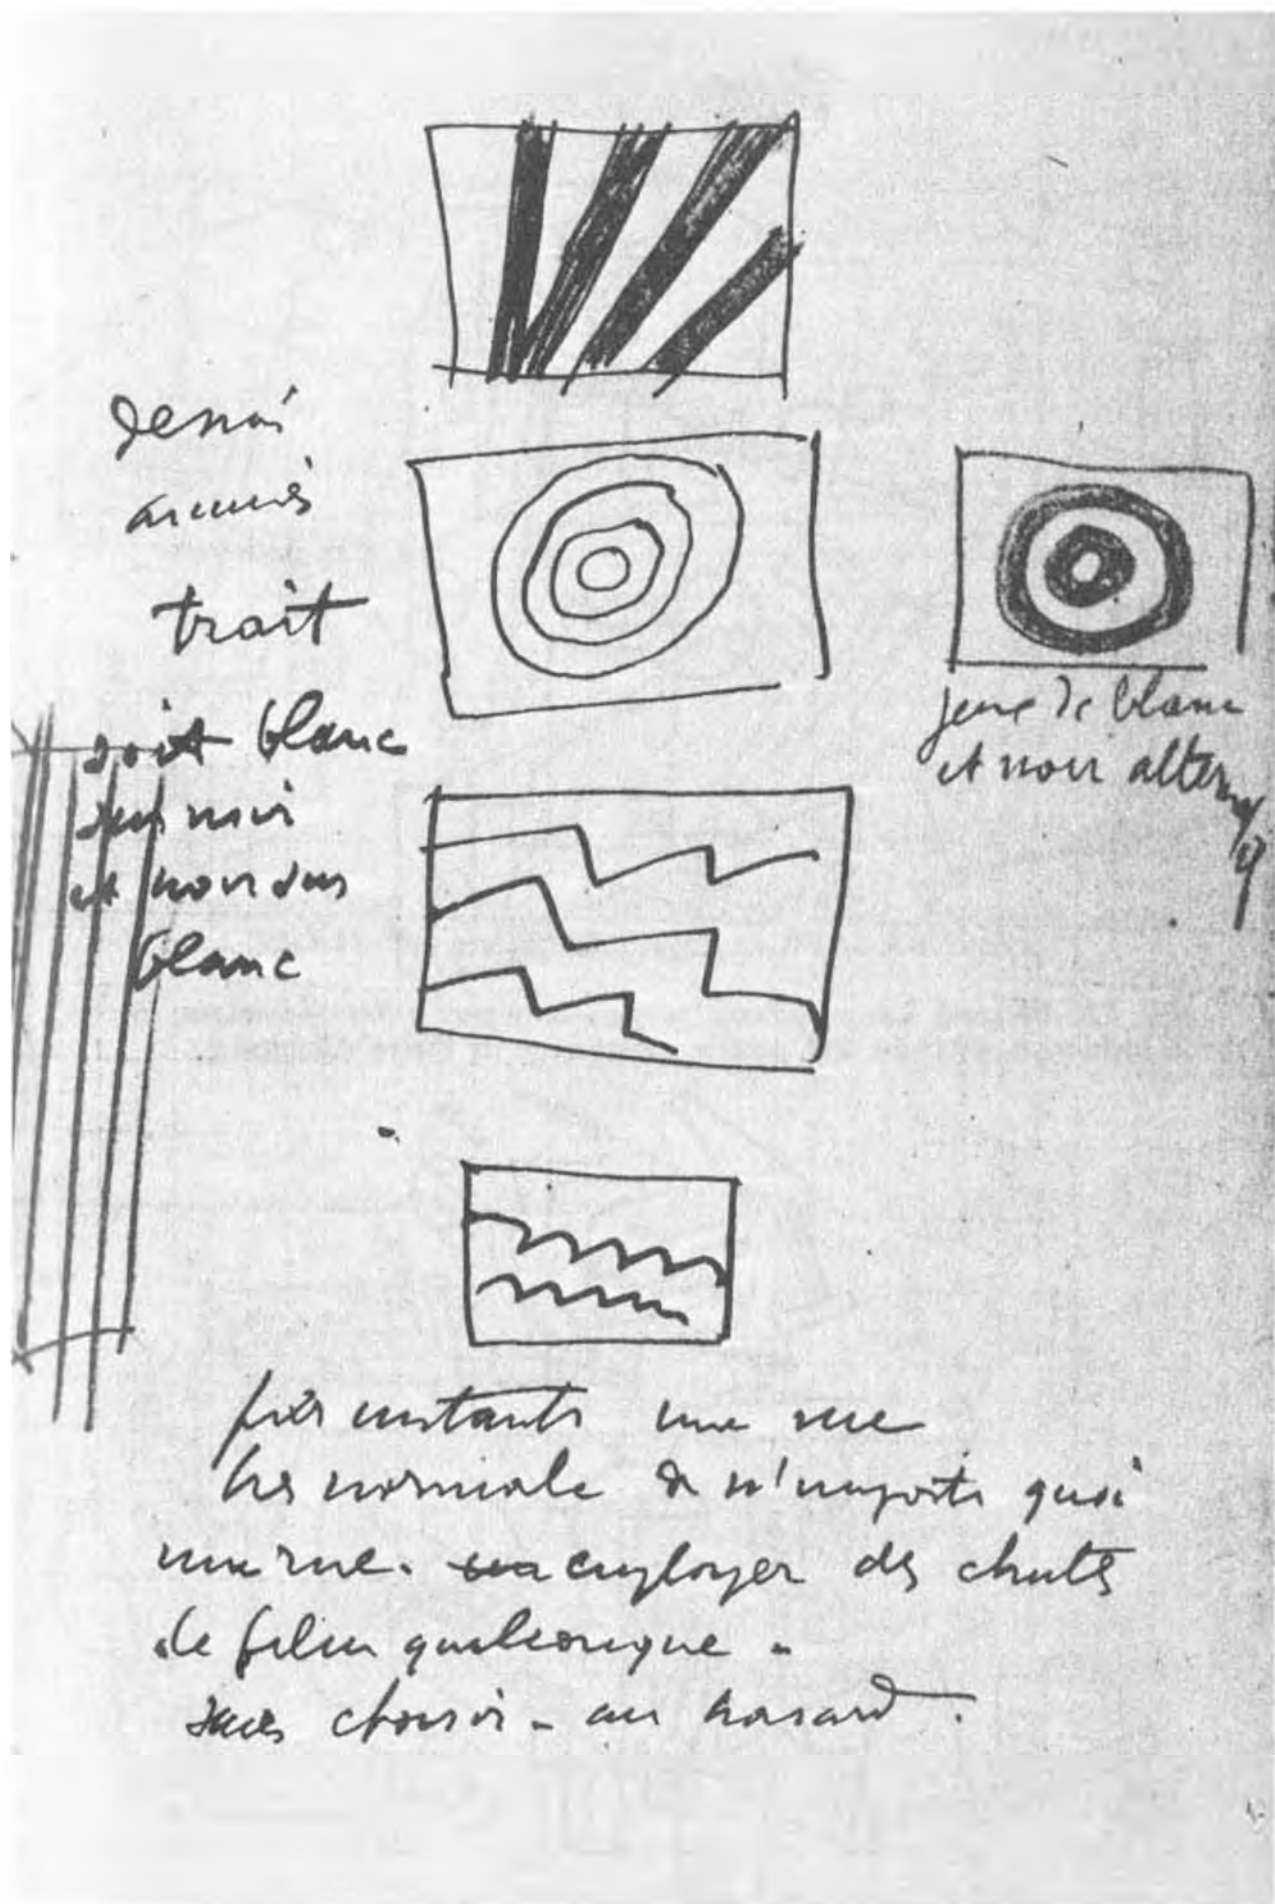 dessin
animés
trait
soit blanc
sur noir
et noir sur
blanc
jeux de blanc
et noir alternés
par instants une vue
très normale de n'importe quoi
une rue. employer des chutes
de film quelconque -
sans choisir - au hasard.